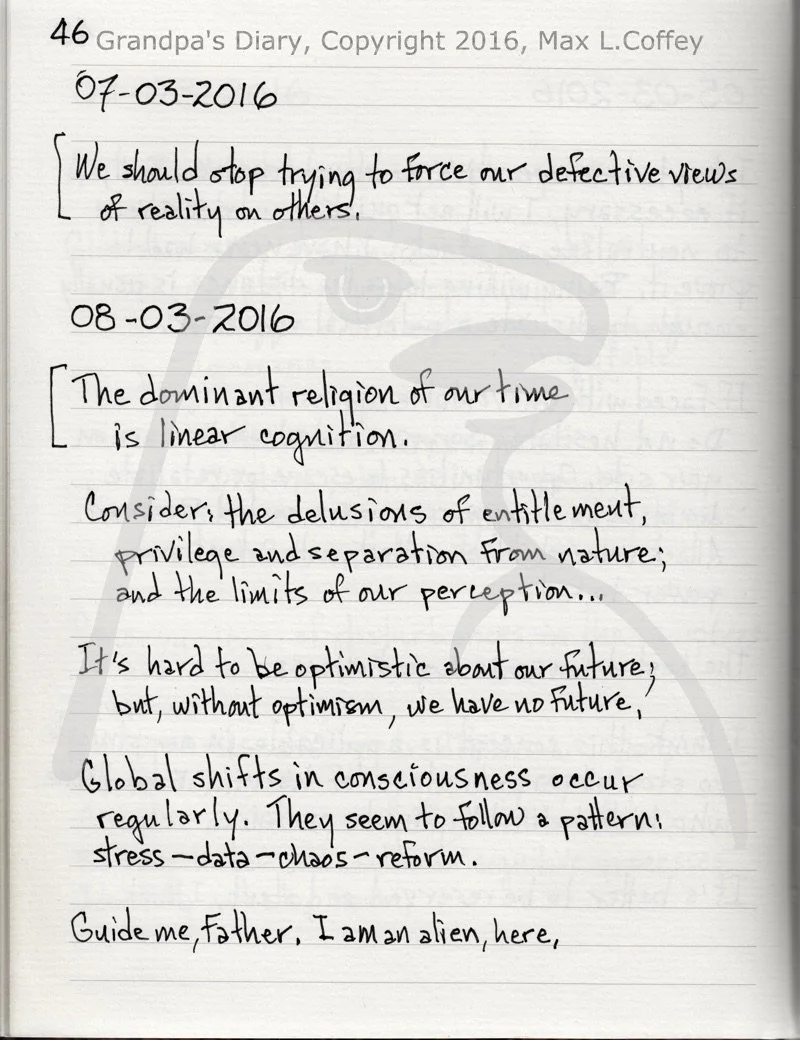 46 Grandpa's Diary, Copyright 2016, Max L.Coffey
07-03-2016
We should stop trying to force our defective views
of reality on others.
08-03-2016
The dominant religion of our time
is linear cognition.
Consider: the delusions of entitlement,
privilege and separation from nature;
and the limits of our perception...
It's hard to be optimistic about our future;
but, without optimism, we have no future.
Global shifts in consciousness occur
regularly. They seem to follow a pattern:
stress-data-chaos-reform.
Guide me, Father. I am an alien, here.